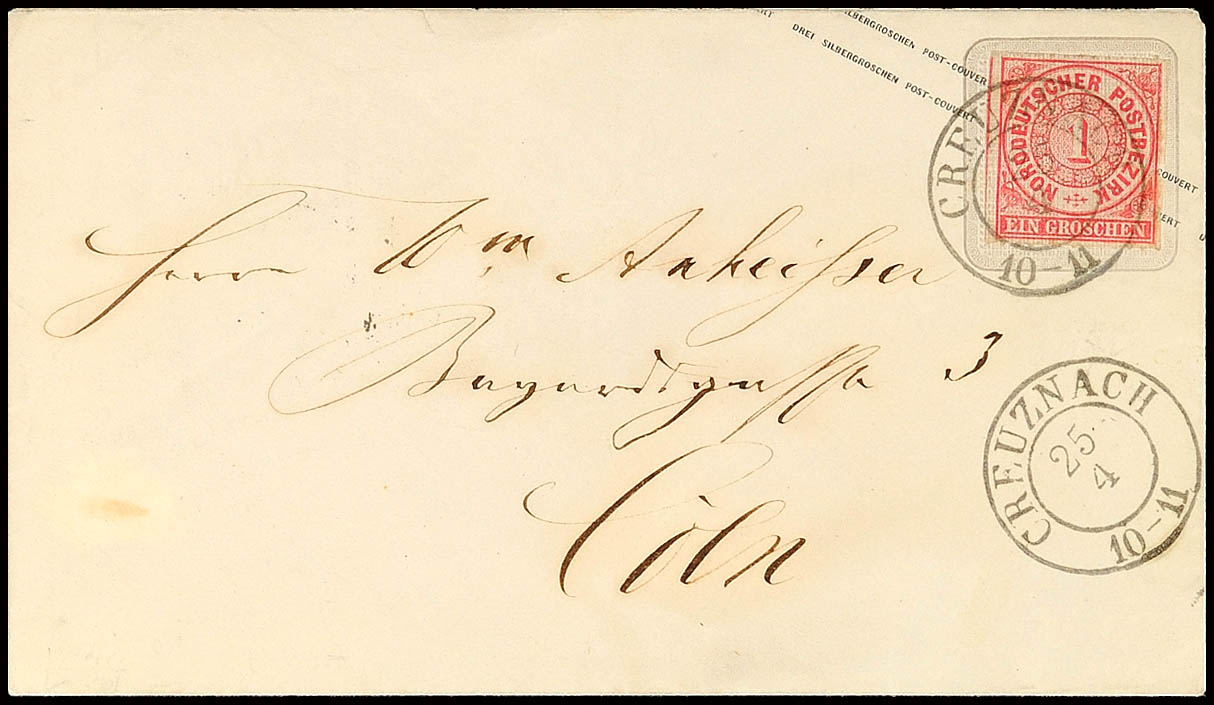 SILBERGROSCHEN POST-COUVER
DREI SILBERGROSCHEN POST-COUVERT
OUVERT
NORDDEUTSCHER POSTBEZIRK
1
EIN GROSCHEN
CREUZ
10-11
Herrn Wm Anheisser
3
Cöln
CREUZNACH
25
4
10-11